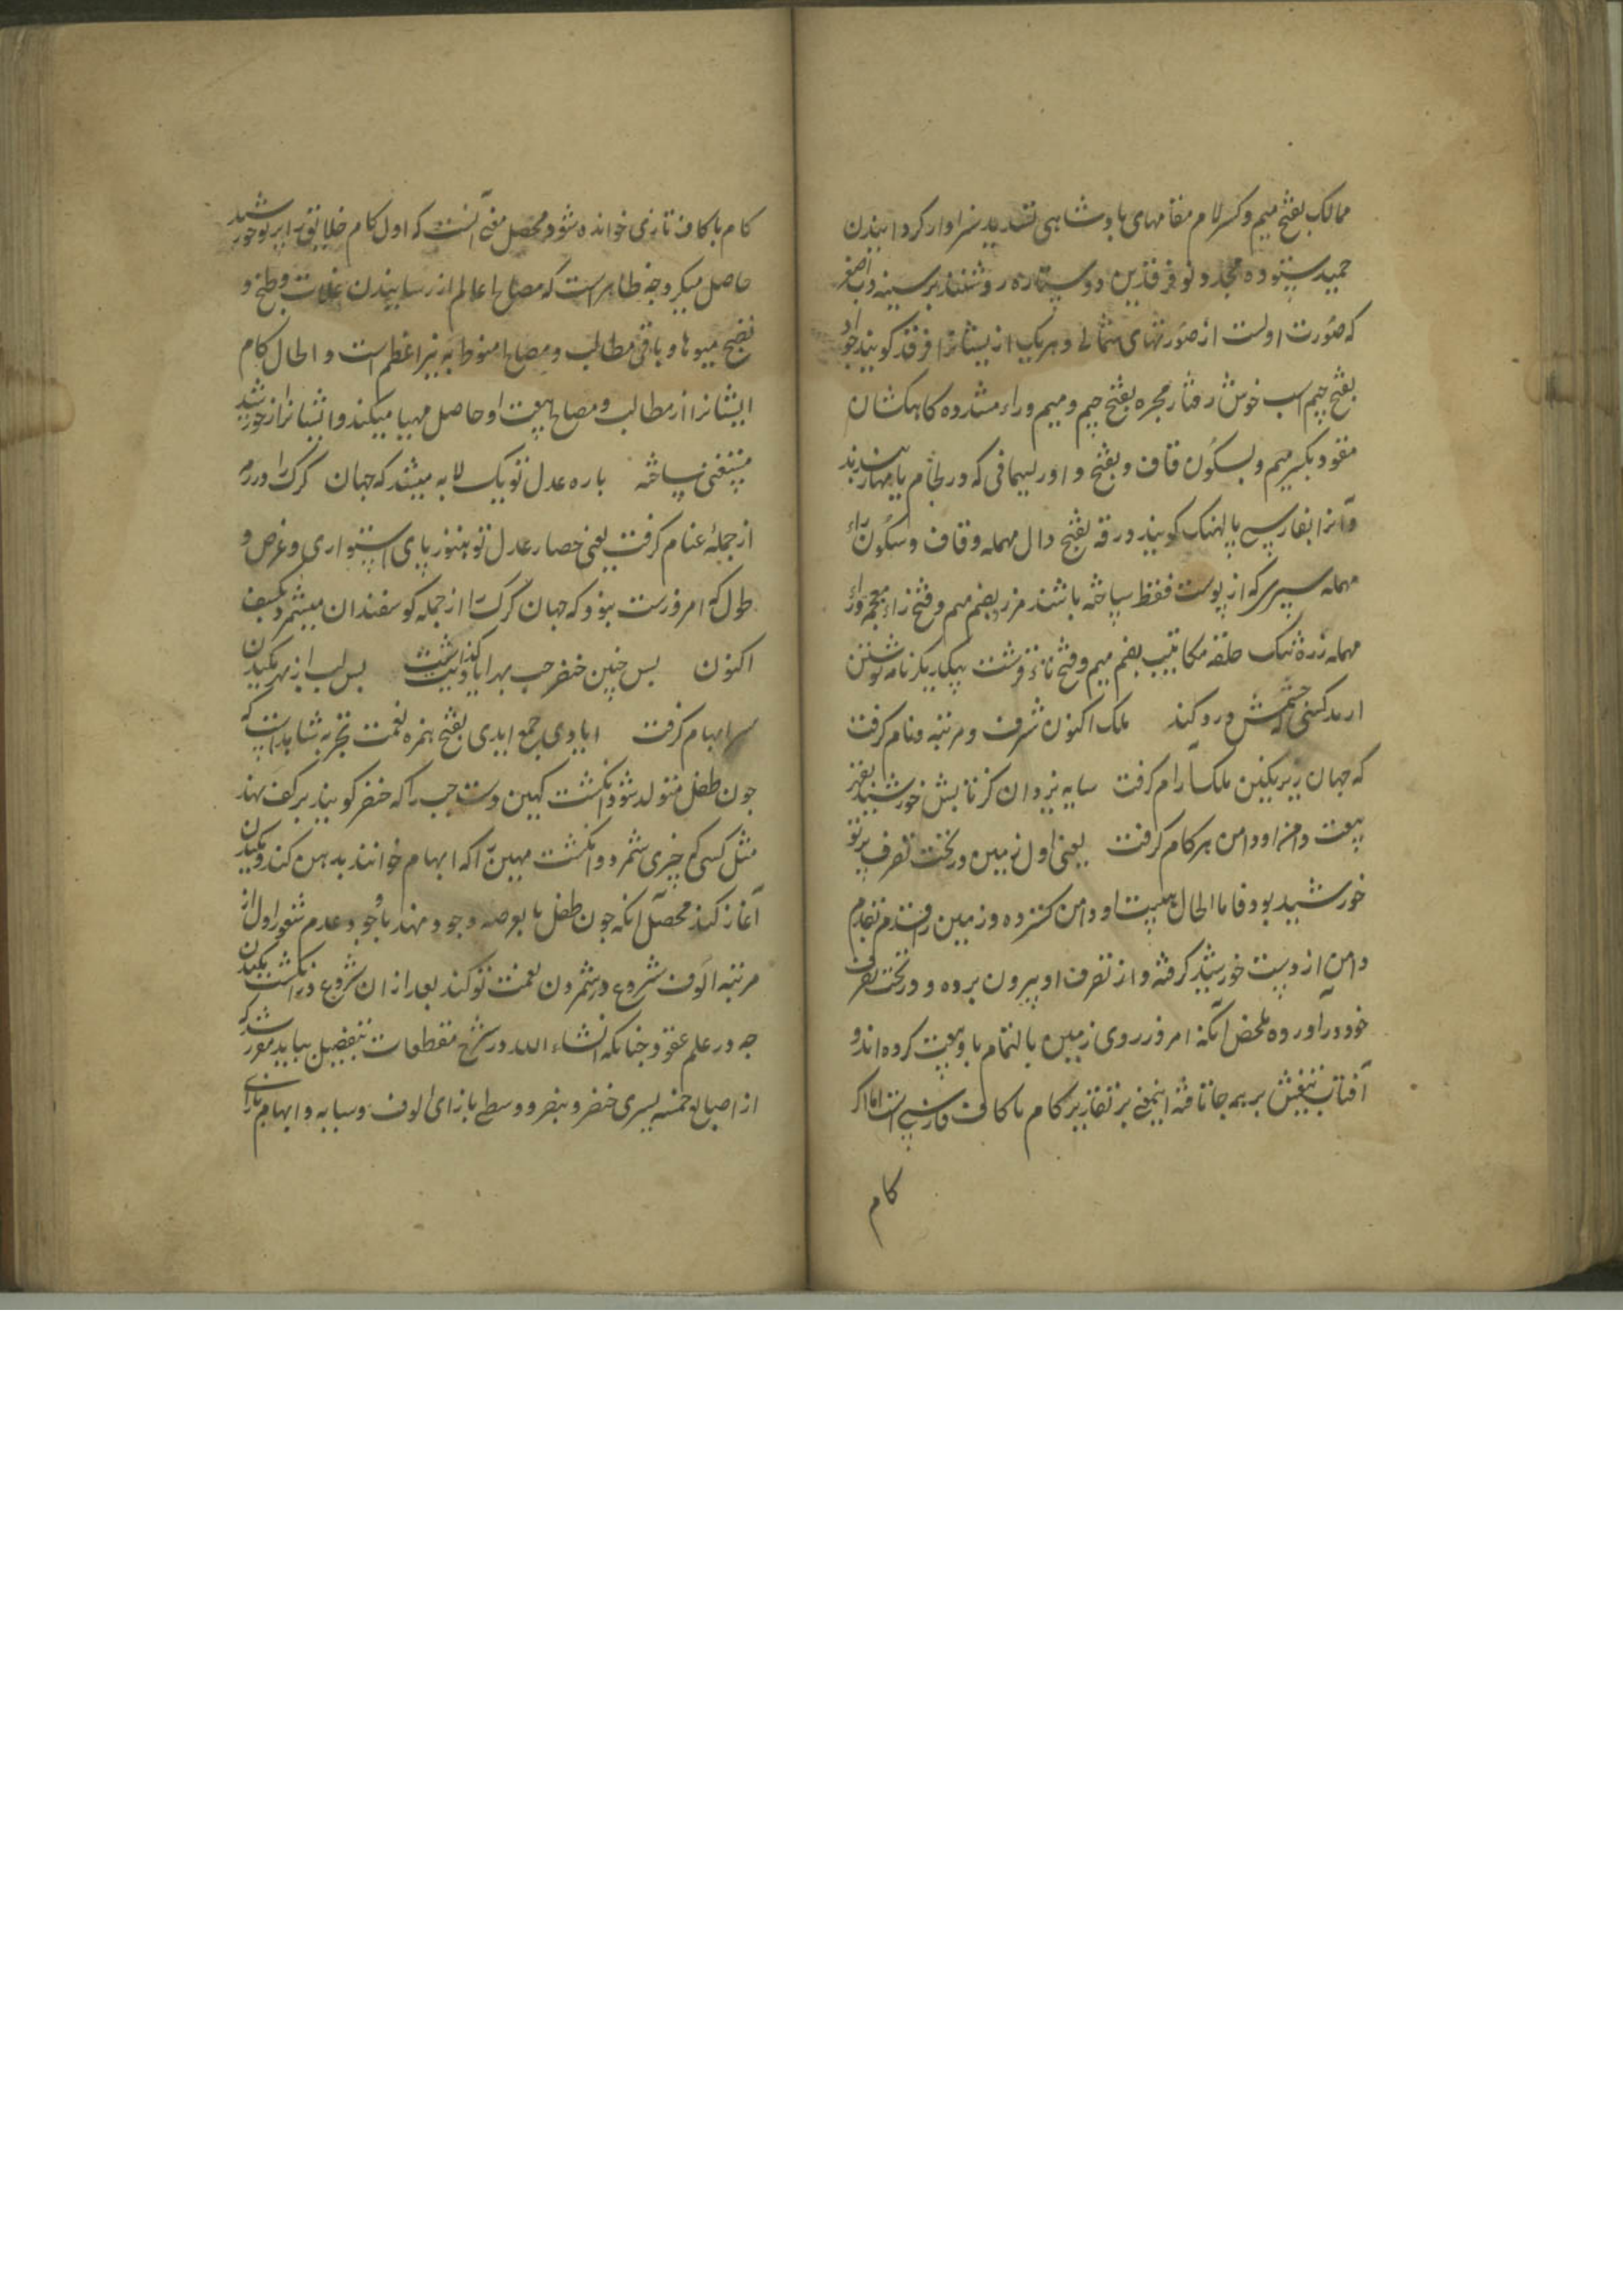 ممالک بفتح میم و کسر لام مقامهای پادشاهی تشدید سزاوار کردانیدن
حمید ستوده مجدد نو فرقدین دو ستاره روشنند بر سینه دب اصغر
که صورت اولست از صورتهای شمالی و هر یک از یشانرا فرقد کویند جواد
بفتح جیم اسب خوش رفتار مجره بفتح جیم و میم و راء مشدده کاهکشان
مقود بکسر میم و بسکون قاف و بفتح واو ریسمانی که در لجام یا مهار بندند
و آنرا بفارسی پالهنک کویند درقه بفتح دال مهمله و قاف و سکون راء
مهمله سپری که از پوست فقط ساخته باشند مزرد بضم میم و فتح زاء معجمه و راء
مهمله زره تنک حلقه مکاتیب بضم میم و فتح تاء قرشت بیکدیکر نامه نوشتن
ارمد کسی که چشمش درد کند ملک اکنون شرف و مرتبه و نام کرفت
که جهان زیر نکین ملک آرام کرفت سایه یزدان کز تابش خورشید بفر
بیعت دامن او دامن هر کام کرفت یعنی اول زمین در تحت تصرف پرتو
خورشید بود فاما الحال بیعت او دامن کسترده و زمین را قدم بقدم
دامن از دست خورشید کرفته و از تصرف او بیرون برده و در تحت تصرف
خود در آورده ملخص آنکه امروز روی زمین بالتمام با او بیعت کرده اند و
آفتاب تیغش بر همه جا تافته اینمعنی بر تقدیر کام با کاف فارسی است اما اکر
کام
کام با کاف تازی خوانده شود محصل معنی آنست که اول کام خلایق را پرتو خورشید
حاصل میکرد چه ظاهر است که مصالح اعالم از رسانیدن غلات و طبخ و
نضج میوها و باقی مطالب و مصالح منوط به نیر اعظم است و الحال کام
ایشانرا از مطالب و مصالح بیعت او حاصل مهیا میکند و ایشانرا از خورشید
مستغنی ساخته باره عدل تو یک لابه میشد که جهان کرک را در رمه
از جمله غنام کرفت یعنی حصار عدل تو هنوز پای استواری و عرض و
طول که امروزست نبود که جهان کرک را از جمله کوسفندان میشمرد بکیف
اکنون بس جنین خنصر چب بهر ایادیت کذاشت بس لب از بهر مکیدن
سر ابهام کرفت ایادی جمع ایدی بفتح همزه نعمت تجربه شاهد است که
جون طفل متولد شود انکشت کهین دست چب را که خنصر کویند بر کف نهد
مثل کسی که چیزی شمرد و انکشت مهین را که ابهام خوانند بدهن کند و مکیدن
آغاز کند محصل آنکه جون طفل پا بعرصه وجود مهند با وجود عدم شعور اول از
مرتبه الوف شروع در شمردن نعمت تو کند بعد از ان شروع در انکشت مکیدن
چه در علم عقود جنانکه انشاء الله در شرح مقطعات بتفصیل بیاید مقرر شد که
از اصابع خمسه یسری خنصر و بنصر و وسطی بازای الوف و سبابه و ابهام بازای